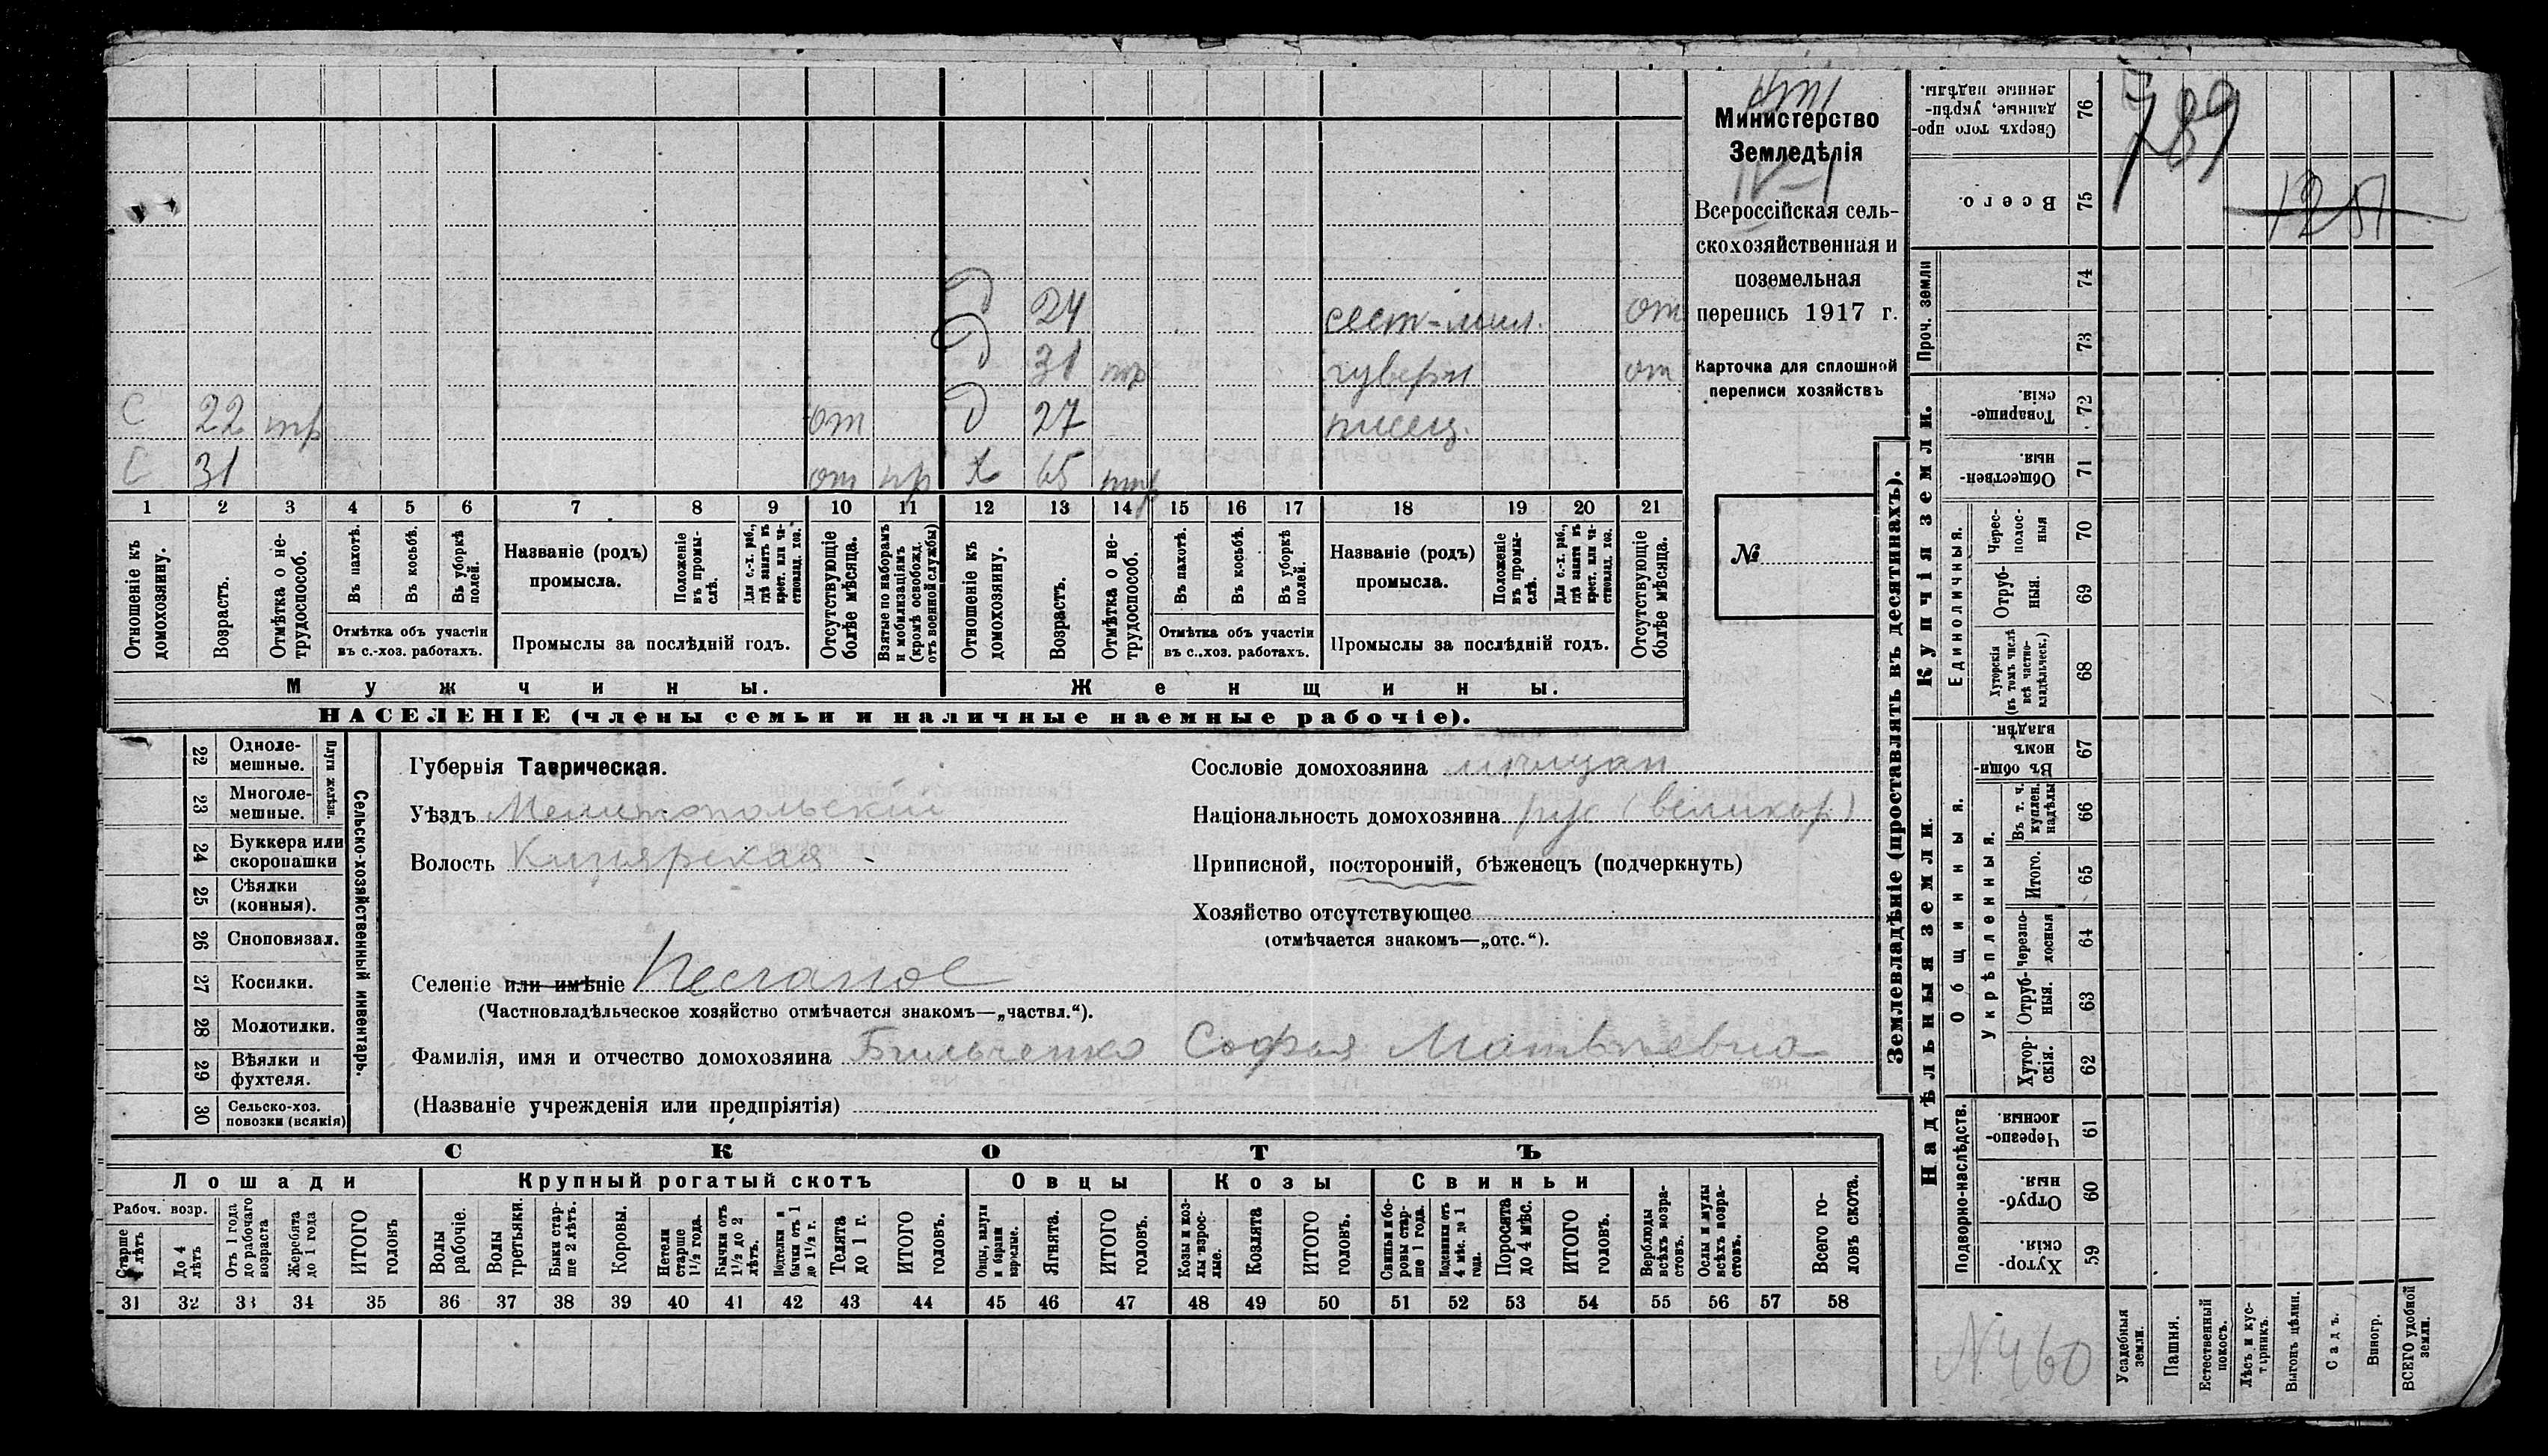 Министерство
Земледѣлія
IV-1
Всероссійская сель-
скохозяйственная и
поземельная
перепись 1917 г.
Карточка для сплошной
переписи хозяйствъ
№
Д 24 сест-мил. от
Д 31 тр гуверн от
С 22 тр от Д 27 писец.
С 31 от пр Х 65 нтр
1 2 3 4 5 6 7 8 9 10 11 12 13 14 15 16 17 18 19 20 21
Отношеніе къ домохозяину.
Возрастъ.
Отмѣтка о не-трудоспособ.
Въ пахотѣ.
Въ косьбѣ.
Въ уборкѣ полей.
Отмѣтка объ участіи
въ с.-хоз. работахъ.
Названіе (родъ)
промысла.
Положеніе въ промы-слѣ.
Для с.-х. раб., гдѣ занятъ въ крест. или ча-стновлад. хоз.
Промыслы за послѣдній годъ.
Отсутствующіе болѣе мѣсяца.
Взятые по наборамъ и мобилизаціямъ (кромѣ освобожд. отъ военной службы)
Отношеніе къ домохозяину.
Возрастъ.
Отмѣтка о не-трудоспособ.
Въ пахотѣ.
Въ косьбѣ.
Въ уборкѣ полей.
Отмѣтка объ участіи
въ с..хоз. работахъ.
Названіе (родъ)
промысла.
Положеніе въ промы-слѣ.
Для с.-х. раб., гдѣ занята въ крест. или ча-стновлад. хоз.
Промыслы за послѣдній годъ.
Отсутствующіе болѣе мѣсяца.
Мужчины.
Женщины.
НАСЕЛЕНІЕ (члены семьи и наличные наемные рабочіе).
22 Одноле-мешные.
23 Многоле-мешные.
Плуги желѣзн.
24 Буккера или скоропашки
25 Сѣялки (конныя).
26 Сноповязал.
27 Косилки.
28 Молотилки.
29 Вѣялки и фухтеля.
30 Сельско-хоз. повозки (всякія)
Сельско-хозяйственный инвентарь.
Губернія Таврическая.
Уѣздъ Мелитопольскій
Волость Кизіярская
Селеніе или имѣніе Песчаное
(Частновладѣльческое хозяйство отмѣчается знакомъ—„частвл.“).
Фамилія, имя и отчество домохозяина Бильченко Софья Матвѣевна
(Названіе учрежденія или предпріятія)
Сословіе домохозяина мѣщан
Національность домохозяина рус (великор)
Приписной, посторонній, бѣженец (подчеркнуть)
Хозяйство отсутствующее
(отмѣчается знакомъ—„отс.“).
СКОТЪ
Лошади
Крупный рогатый скотъ
Овцы
Козы
Свиньи
Рабоч. возр.
Старше 4 лѣтъ
До 4 лѣтъ
Отъ 1 года до рабочаго возраста
Жеребята до 1 года
ИТОГО головъ
Волы рабочіе.
Волы третьяки.
Быки стар-ше 2 лѣтъ.
Коровы.
Нетели старше 1½ года.
Бычки отъ 1½ до 2 лѣтъ.
Подтелки и бычки отъ 1 до 1½ г.
Телята до 1 г.
ИТОГО головъ.
Овцы, валухи и бараны взрослые.
Ягнята.
ИТОГО головъ.
Козы и коз-лы взрос-лые.
Козлята
ИТОГО головъ.
Свиньи и бо-ровы стар-ше 1 года.
Подсвинки отъ 4 мѣс. до 1 года.
Поросята до 4 мѣс.
ИТОГО головъ.
Верблюды всѣхъ возра-стовъ.
Ослы и мулы всѣхъ возра-стовъ.
Всего го-ловъ скота.
31 32 33 34 35 36 37 38 39 40 41 42 43 44 45 46 47 48 49 50 51 52 53 54 55 56 57 58
Землевладѣніе (проставлять въ десятинахъ).
789
1251
76 Сверхъ того про-данные, укрѣп-ленные надѣлы.
75 Всего.
74
73
Проч. земли
72 Товарище-скія.
71 Обществен-ныя.
70 Черес-полос-ныя
69 Отруб-ныя.
68 Хуторскія (въ томъ числѣ всѣ частно-владѣльческ.)
Единоличныя.
Купчія земли.
67 Въ общин-номъ владѣн.
66 Въ т. ч. куплен. надѣлы
65 Итого.
64 Черезпо-лосныя
63 Отруб-ныя.
62 Хутор-скія.
Укрѣпленныя.
Общинныя.
61 Черезпо-лосныя
60 Отруб-ныя.
59 Хутор-скія.
Подворно-наслѣдств.
Надѣльныя земли.
N 460
Усадебныя земли.
Пашня.
Естественный покосъ.
Лѣсъ и кус-тарникъ.
Выгонъ цѣлин.
Садъ.
Виногр.
ВСЕГО удобной земли.